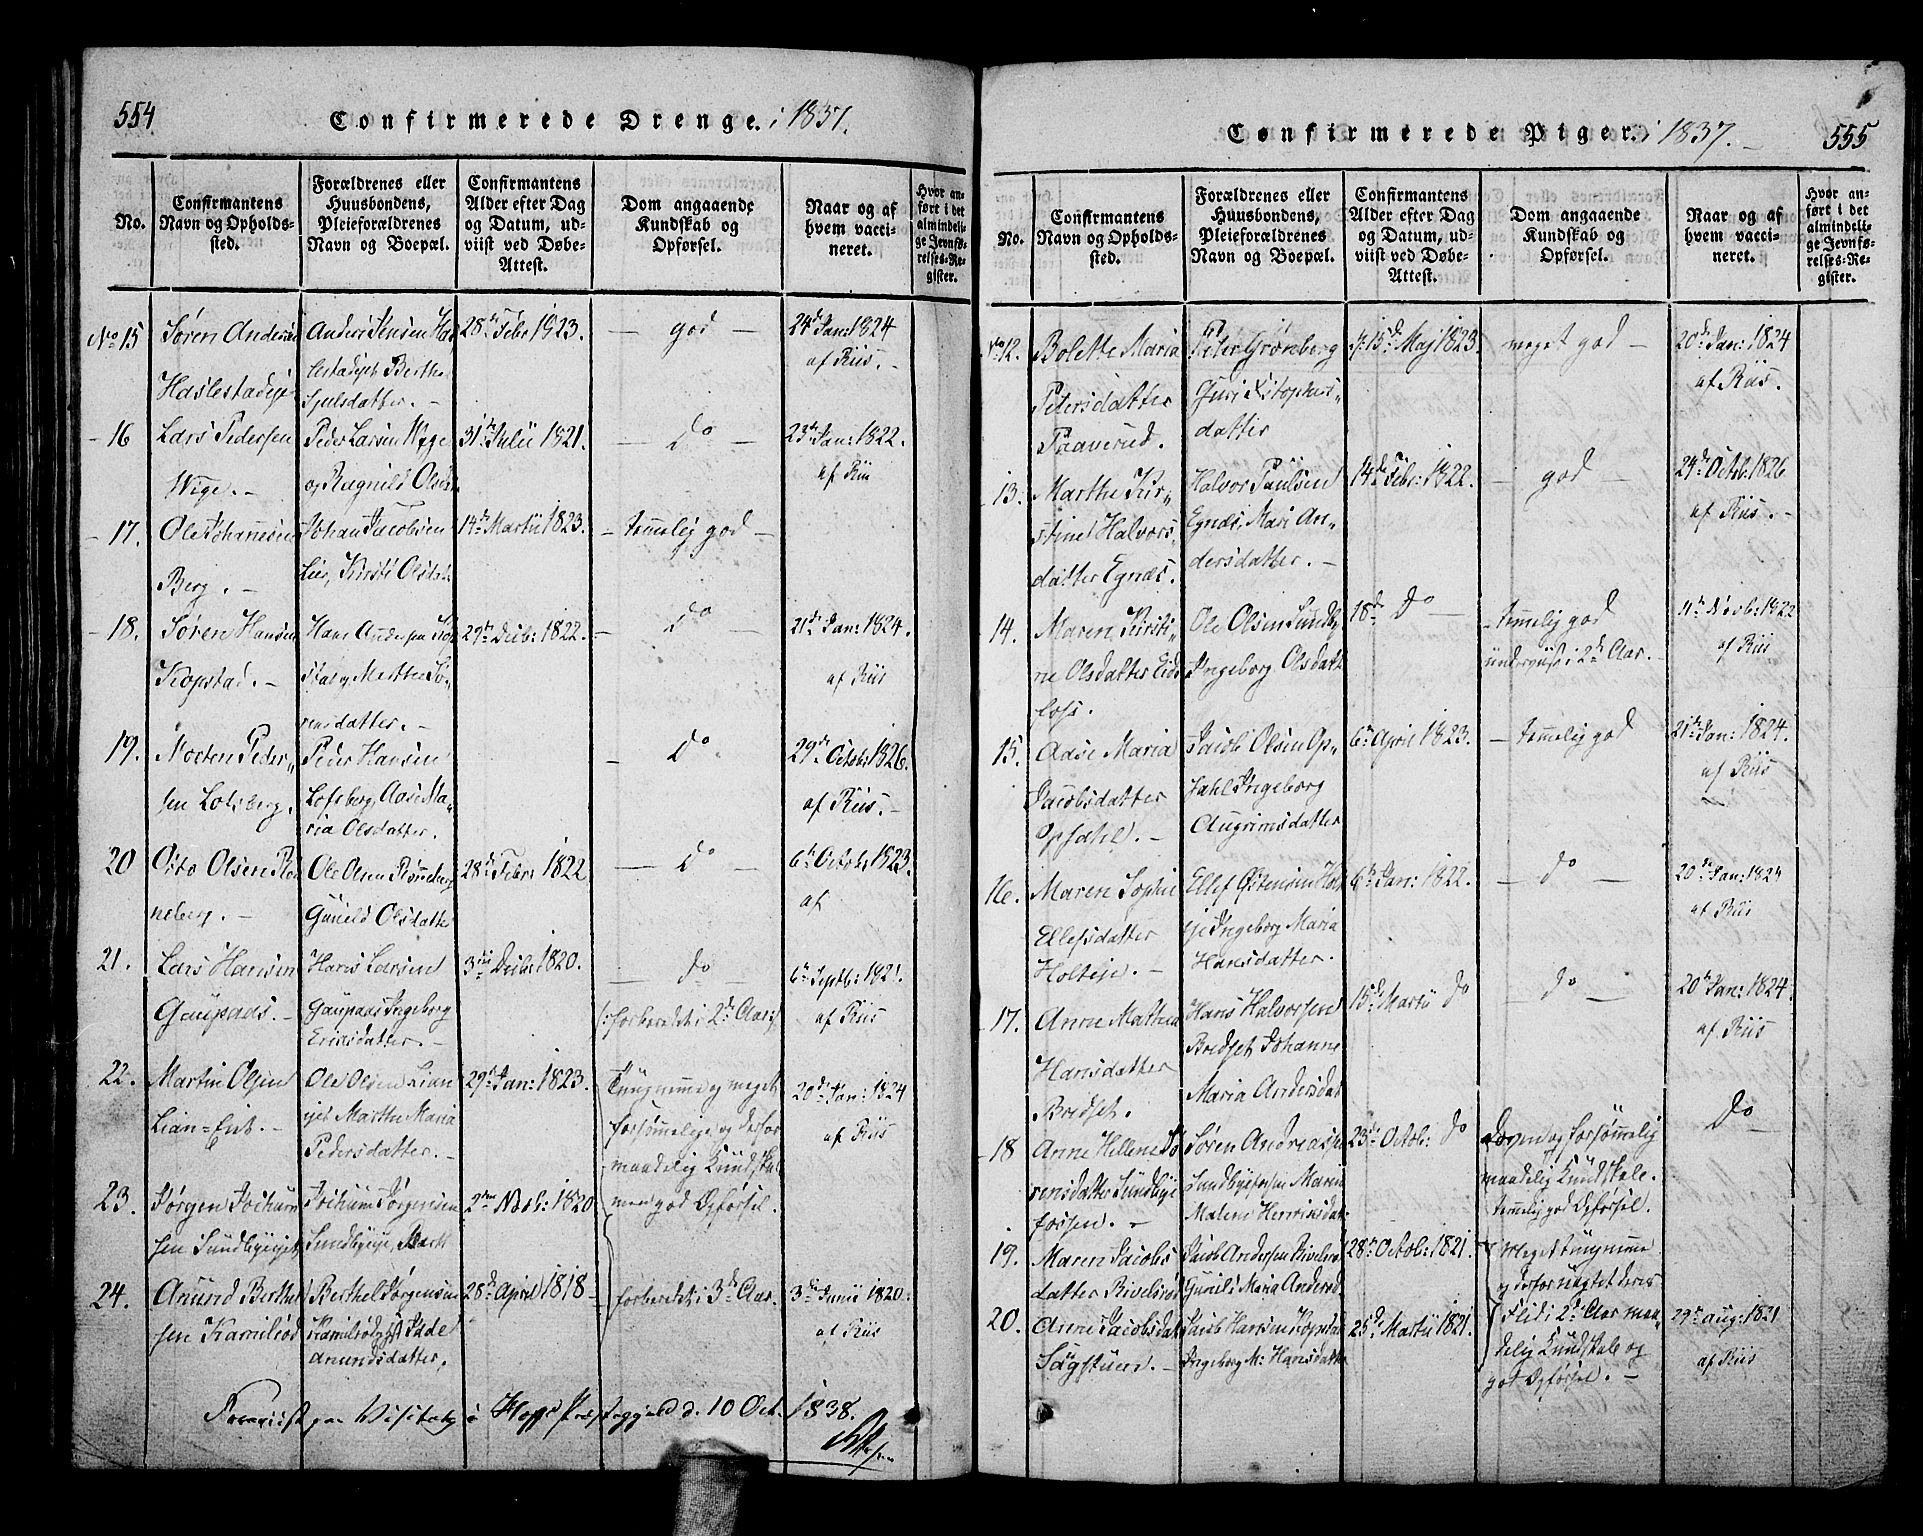 554
Confirmerede Drenge. i 1837.
No.
Confirmantens
Navn og Opholds-
sted.
Forældrenes eller
Huusbondens,
Pleieforældrenes
Navn og Boepæl.
Confirmantens
Alder efter Dag
og Datum, ud-
viist ved Døbe-
Attest.
Dom angaaende
Kundskab og
Opførsel.
Naar og af
hvem vacci-
neret.
Hvor an-
ført i det
almindeli-
ge Jevnfø-
relses-Re-
gister.
No 15
Søren Anders
Haslestadeje
Anders Jensen Has
lestadejet Berthe
Sjulsdatter. -
28de Febr 1823.
- god -
24de Jan: 1824
af Riis. -
- 16
Lars Pedersen
Wige. -
Peder Larsen Wige
og Ragnild Olsdt.
31te Julii 1821.
- do -
23de Jan: 1822.
af Riis
- 17.
Ole Johannesen
Berg. -
Johan Jacobsen
Lier, Kirsti Olsdatt
14de Martii 1823.
- temmelig god -
- 18.
Søren Hansen
Kopstad. -
Hans Andersen Kop
stad, Methe Sø-
rensdatter. -
29de Decb: 1822.
- do -
21de Jan: 1824.
af Riis
19.
Morten Peder-
sen Lofsberg.
Peder Hansen
Lofsberg, Aase Ma-
ria Olsdatter.
- do -
29de Octob: 1826.
af Riis. -
20
Otto Olsen Røn
neberg. -
Ole Olsen Rønneberg
Gunild Olsdatte
28de Febr: 1822
- do -
6te Octob: 1823.
af
21.
Lars Hansen
Gaupaas. -
Hans Larsen
Gaupaas Ingeborg
Ericsdatter. -
3die Decb: 1820.
- do -
/: forberedet i 2det Aar :/
6te Septb: 1821.
af Riis
22.
Martin Olsen
Lian-Eiet. -
Ole Olsen Lian
ejet Marthe Maria
Pedersdatter. -
29de Jan: 1823.
Tungnemme og meget
forsømmelige, og derfor
maadelig Kundskab
men god Opførsel.
20de Jan: 1824
af Riis
23.
Jørgen Jochum
sen Sundbyeejet
Jochum Jørgensen
Sundbyeje,
2den Novb: 1820
24.
Anund Berthel
sen Kamilrød
Berthel Jørgensen
Kamilrødejet
Anundsdatter.
28de April 1818 -
forberedet i 3de Aar.
3die Junii 1820.
af Riis
Foreviist paa Visitatz i Hofs Præstegjeld d. 10 Oct. 1838.
Confirmerede Piger. i 1837. -
555
No.
Confirmantens
Navn og Opholds-
sted.
Forældrenes eller
Huusbondens,
Pleieforældrenes
Navn og Boepæl.
Confirmantens
Alder efter Dag
og Datum, ud-
viist ved Døbe-
Attest.
Dom angaaende
Kundskab og
Opførsel.
Naar og af
hvem vacci-
neret.
Hvor an-
ført i det
almindeli-
ge Jevnfø-
relses-Re-
gister.
No 12.
Bolette Maria
Petersdatter
Paaverud.
Peter Grønberg
Guri Xstophers-
datter
f. 15de Maj 1823.
meget god -
20de Jan: 1824
af Riis.
13.
Marthe Kir-
stine Halvors-
datter Egnæs.
Halvor Paulsen
Egnæs, Mari An-
dersdatter. -
14de Febr: 1822.
- god -
24de Octob. 1826
af Riis. -
14.
Maren Kirsti-
ne Olsdatter Eids
foss.
Ole Olsen Sundby
Ingeborg Olsdatt
18de do -
- temmelig god
underviist i 2det Aar. -
11te Novb: 1822
af Riis
15.
Aase Maria
Jacobsdatter
Opsahl. -
Jacob Olsen Op-
sahl Ingeborg
Augrimsdatter
6te April 1823.
- temmelig god
21de Jan: 1824.
af Riis
16.
Maren Sophie
Ellefsdatter
Holteje. -
Ellef Østensen Holt
eje Ingeborg Maria
Hansdatter.
6te Jan: 1822.
- do -
20de Jan: 1824
af Riis
17.
Anne Mathea
Hansdatter
Bredset.
Hans Halvorsen
Bredset, Johanne
Maria Andersdat
15de Martii do
- do -
20de Jan: 1824.
af Riis
- 18
Anne Hellene Sø
rensdatter Sundbyе
fossen. -
Søren Andreassen
Sundbyefossen Maria
Malene Henriksdat
23de Octob: do
Doven og forsømmelig
maadelig Kundskab.
temmelig god Opførsel.
do -
19.
Maren Jacobs
datter Rivelsrød
Jacob Andersen Rivelsrød
Gunild Maria Andersd.
28de Octob: 1821.
Meget tungnemme
og derfor uagtet deres
Flid i 2det Aar maa-
delig Kundskab og
god Opførsel. -
20.
Anne Jacobsdat
Sagstuen. -
Jacob Hansen Kopstad
Ingeborg M: Hansdatte
25de Martii 1821.
29de aug: 1821
af Riis